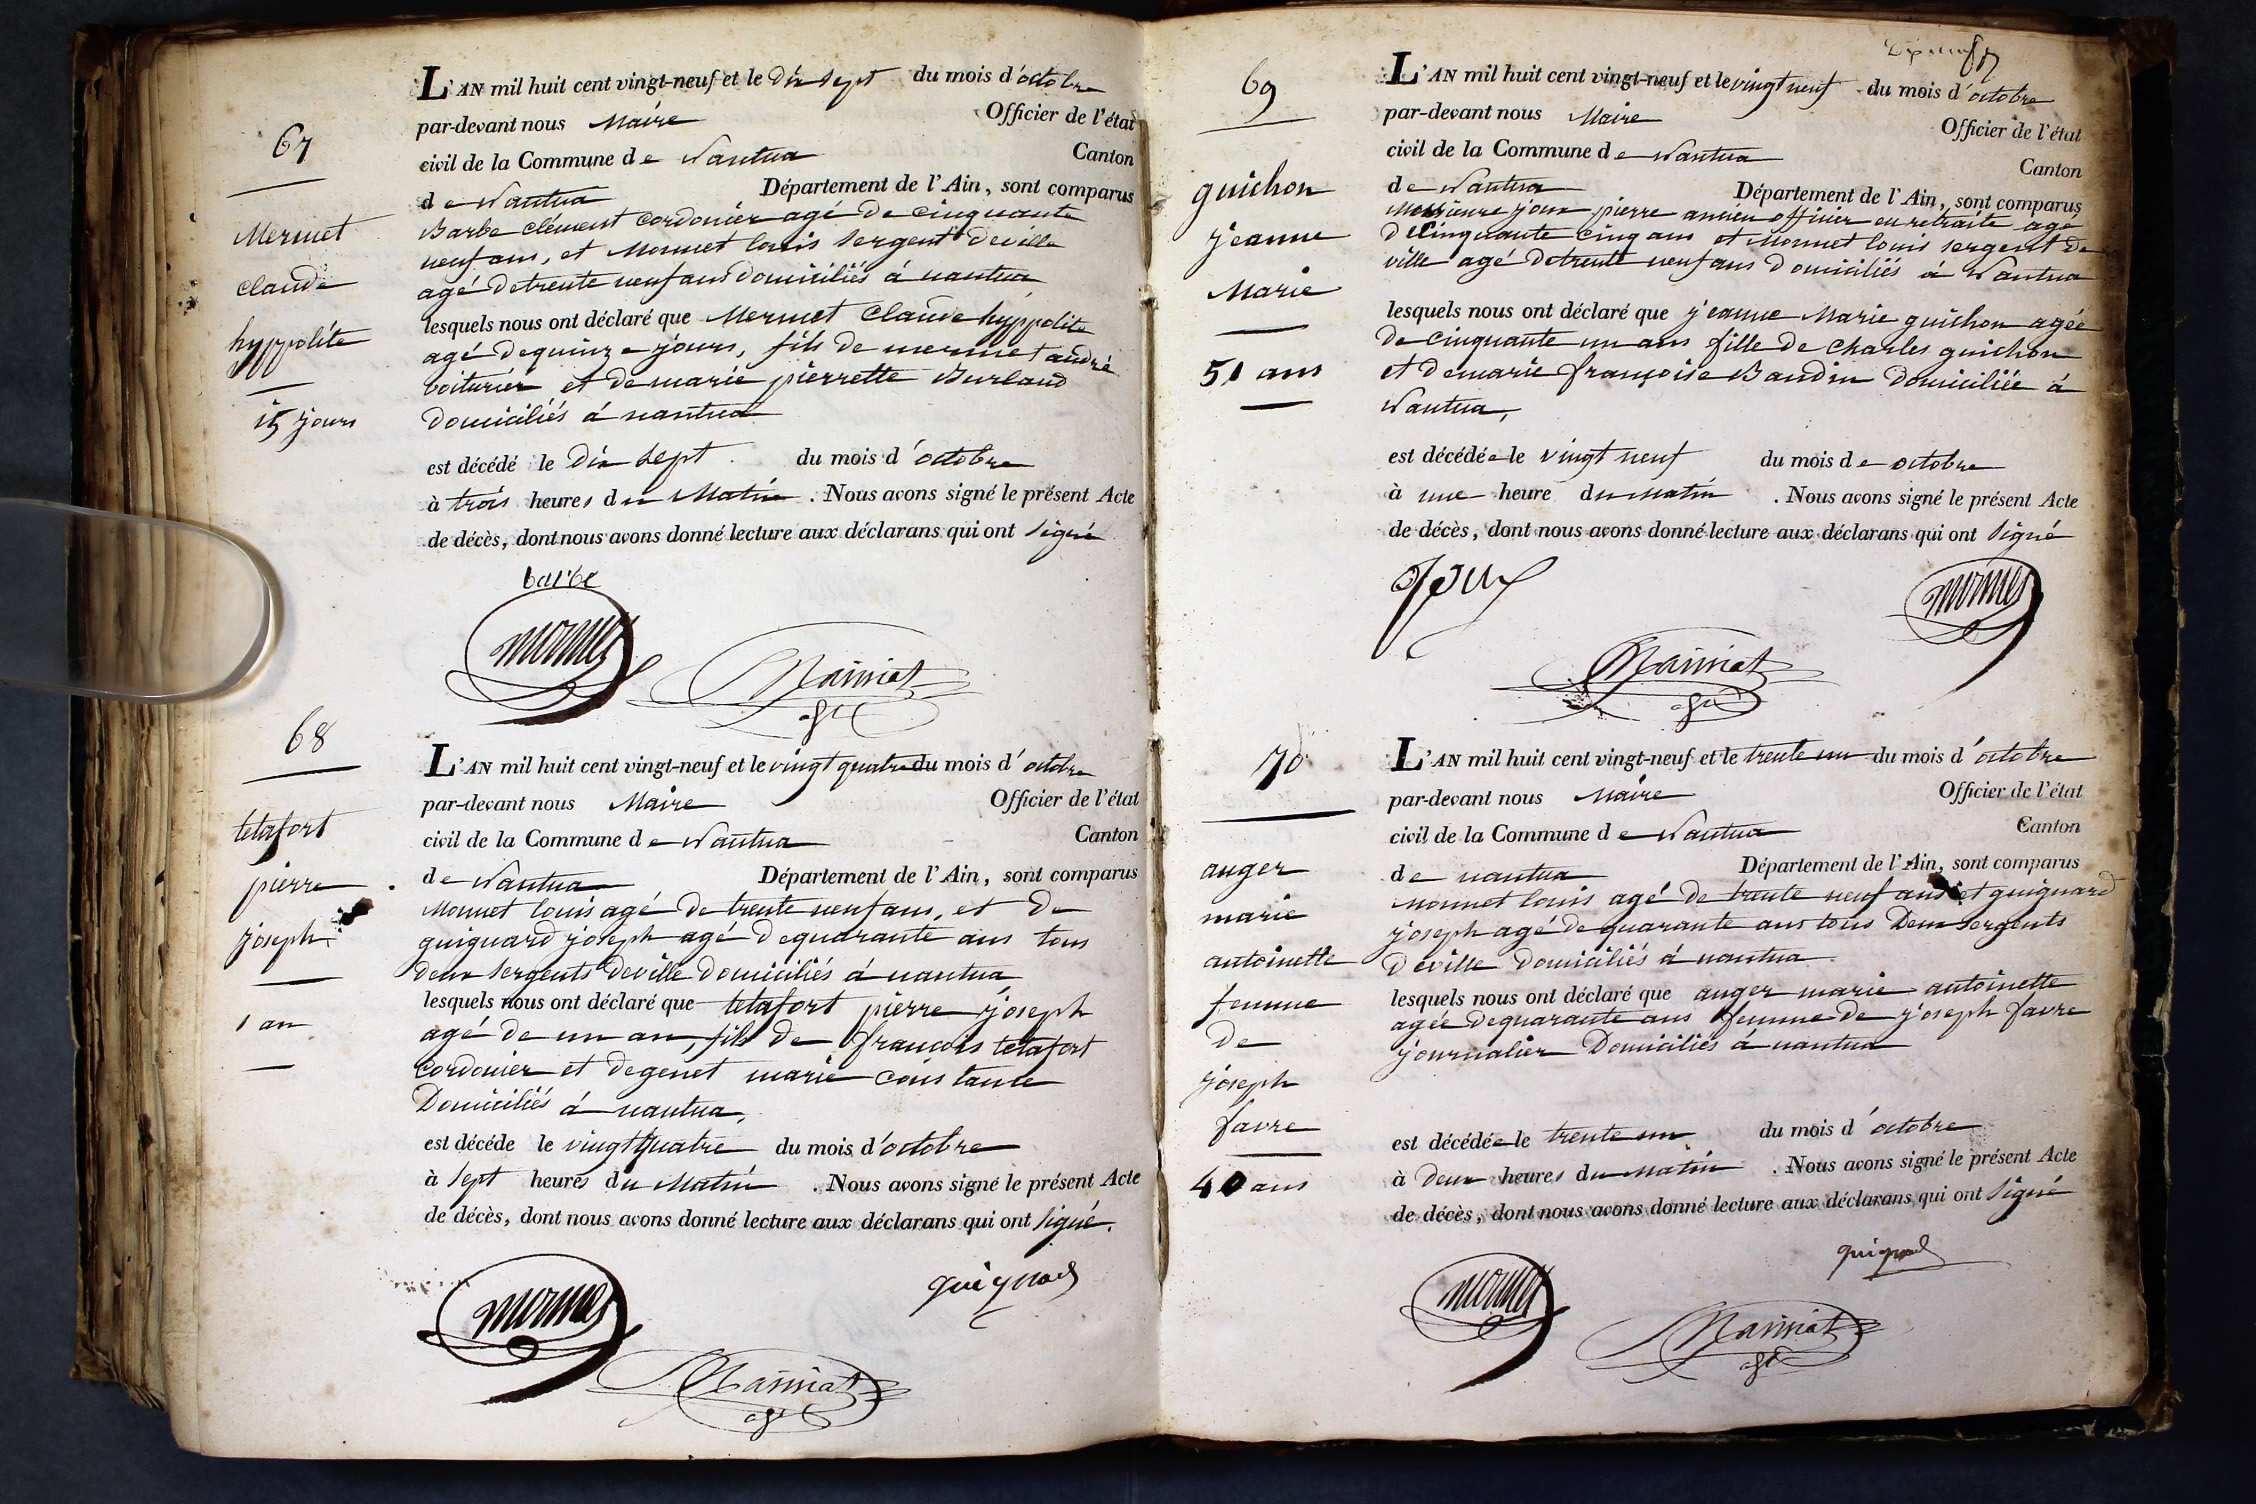 67
Mermet
claude
hyppolite
15 jours
L'AN mil huit cent vingt-neuf et le dix sept du mois d'octobre
par-devant nous Maire Officier de l'état
civil de la Commune de Nantua Canton
de Nantua Département de l'Ain, sont comparus
Barbe clément cordonier agé de cinquante
neuf ans, et Monnet louis Sergent deville
agé detrente neuf ans domiciliés á nantua
lesquels nous ont déclaré que Mermet Claude hyppolite
agé dequinze jours, fils de mermet andré
voiturier et de marie pierrette Burland
domiciliés á nantua
est décédé le dix Sept du mois d'octobre
à trois heures du Matin . Nous avons signé le présent Acte
de décès, dont nous avons donné lecture aux déclarans qui ont signé
barbe
monnet
68
tetafort
pierre
joseph
1 an
L'AN mil huit cent vingt-neuf et le vingt quatre du mois d'octobre
par-devant nous Maire Officier de l'état
civil de la Commune de Nantua Canton
de Nantua Département de l'Ain, sont comparus
Monnet louis agé de trente neuf ans, et de
guignard joseph agé dequarante ans tous
deux Sergents deville domiciliés á nantua
lesquels nous ont déclaré que tetafort pierre joseph
agé de un an, fils de françois tétafort
cordonier et degenet marie constance
Domiciliés á nantua,
est décéde le vingt quatre du mois d'octobre
à Sept heures du Matin . Nous avons signé le présent Acte
de décès, dont nous avons donné lecture aux déclarans qui ont signé.
guignard
monnet
69
guichon
jeanne
Marie
51 ans
L'AN mil huit cent vingt-neuf et le vingt neuf du mois d'octobre
par-devant nous Maire Officier de l'état
civil de la Commune de Nantua Canton
de Nantua Département de l'Ain, sont comparus
pierre ancien officier en retraite agé
de cinquante cinq ans et Monnet louis sergent de
ville agé detrente neuf ans domiciliés á Nantua
lesquels nous ont déclaré que jeanne Marie guichon agée
de cinquante un ans fille de Charles guichon
et demarie françoise Baudin domiciliée á
Nantua,
est décédée le vingt neuf du mois de octobre
à une heure du matin . Nous avons signé le présent Acte
de décès, dont nous avons donné lecture aux déclarans qui ont signé
Joux
monnet
70
auger
marie
antoinette
femme
de
joseph
favre
40 ans
L'AN mil huit cent vingt-neuf et le trente un du mois d'octobre
par-devant nous Maire Officier de l'état
civil de la Commune de Nantua Canton
de nantua Département de l'Ain, sont comparus
monnet louis agé de trente neuf ans et guignard
joseph agé de quarante ans tous Deux Sergents
deville domiciliés á nantua
lesquels nous ont déclaré que auger marie antoinette
agée dequarante ans femme de joseph favre
journalier Domiciliés á nantua
est décédée le trente un du mois d'octobre
à deux heures du matin . Nous avons signé le présent Acte
de décès, dont nous avons donné lecture aux déclarans qui ont signé
guignard
monnet